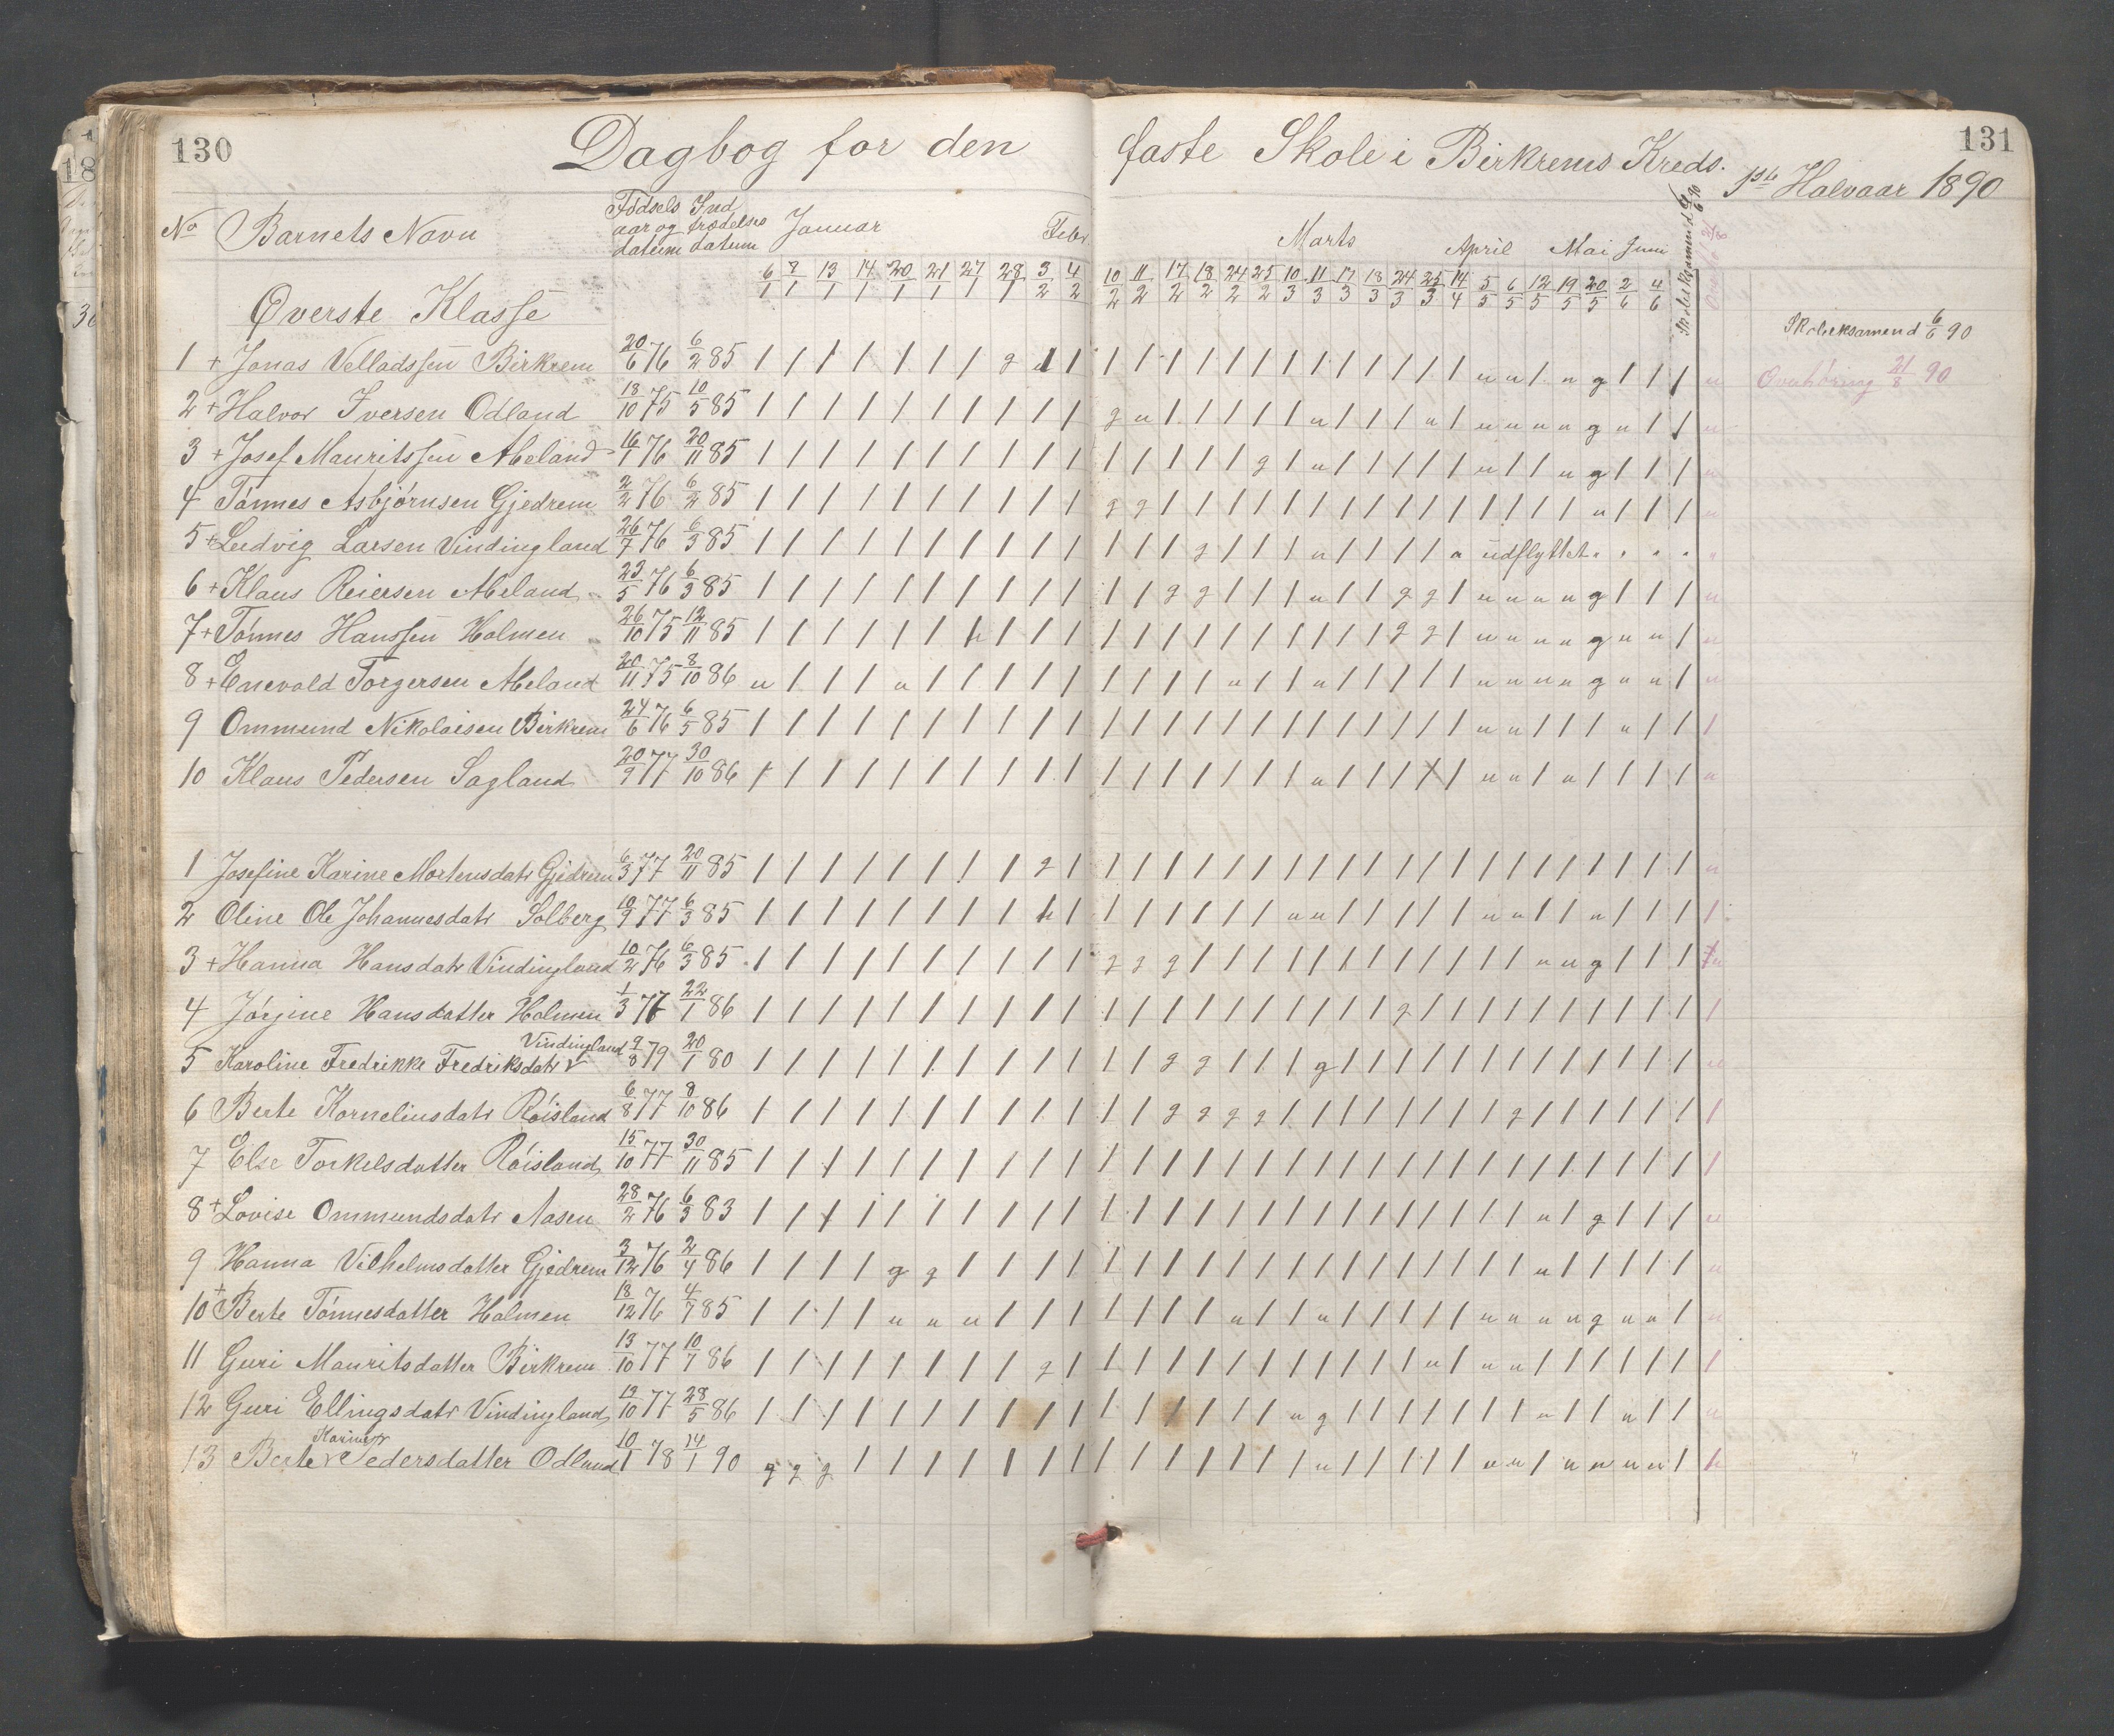 130
Dagbog for den faste Skole i Birkrems Kreds.
131
1ste Halvaar 1890
No Barnets Navn Födsels aar og datum Ind trædelses datum Januar Febr. Marts April Mai Juni Skoleeksamen d 6/6 90
6/1 7/1 13/1 14/1 20/1 21/1 27/1 28/1 3/2 4/2 10/2 11/2 17/2 18/2 24/2 25/2 10/3 11/3 17/3 18/3 24/3 25/3 14/4 5/5 6/5 12/5 19/5 20/5 2/6 4/6
Øverste Klasse
Skoleeksamen d 6/6 90
1 + Jonas Velladssen Birkrem 20/6 76 6/2 85
Overhöring 21/8 90
2 + Halvor Iversen Odland 18/10 75 10/5 85
3 + Josef Mauritssen Meland 16/1 76 20/11 85
4 Tönnes Asbjørnsen Gjedrem 2/2 76 6/2 85
5 + Ludvig Larsen Vindingland 26/7 76 6/3 85 udflyttet
6 + Klaus Reiersen Meland 23/5 76 6/3 85
7 + Tönnes Hanssen Holmen 26/10 75 12/11 85
8 + Enevald Torgersen Meland 20/11 75 8/10 86
9 Ommund Nikolaisen Birkrem 24/6 76 6/5 85
10 Klaus Pedersen Sagland 20/9 77 30/10 86
1 Josefine Karine Mortensdatr Gjedrem 6/3 77 20/11 85
2 Oline Ole Johannesdatr Solberg 10/9 77 6/3 85
3 + Hanna Hansdatr Vindingland 10/2 76 6/3 85
4 Jörgine Hansdatter Holmen 1/3 77 22/1 86
5 Karoline Fredrikke Fredriksdatr Vindingland 9/8 79 20/1 80
6 Berte Korneliusdatr Röisland 6/8 77 8/10 86
7 Else Torkelsdatter Röisland 15/10 77 30/11 85
8 + Lovise Ommundsdatr Aasen 28/2 76 6/3 83
9 Hanna Vilhelmsdatter Gjedrem 3/12 76 2/4 86
10 + Berte Tönnesdatter Holmen 18/12 76 4/7 85
11 Guri Mauritsdatter Birkrem 13/10 77 10/7 86
12 Guri Ellingsdatr Vindingland 19/10 77 28/5 86
13 Berte Karine Pedersdatter Odland 10/1 78 14/1 90